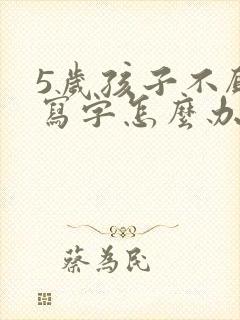 5歲孩子不
寫字怎麼
蔡為民